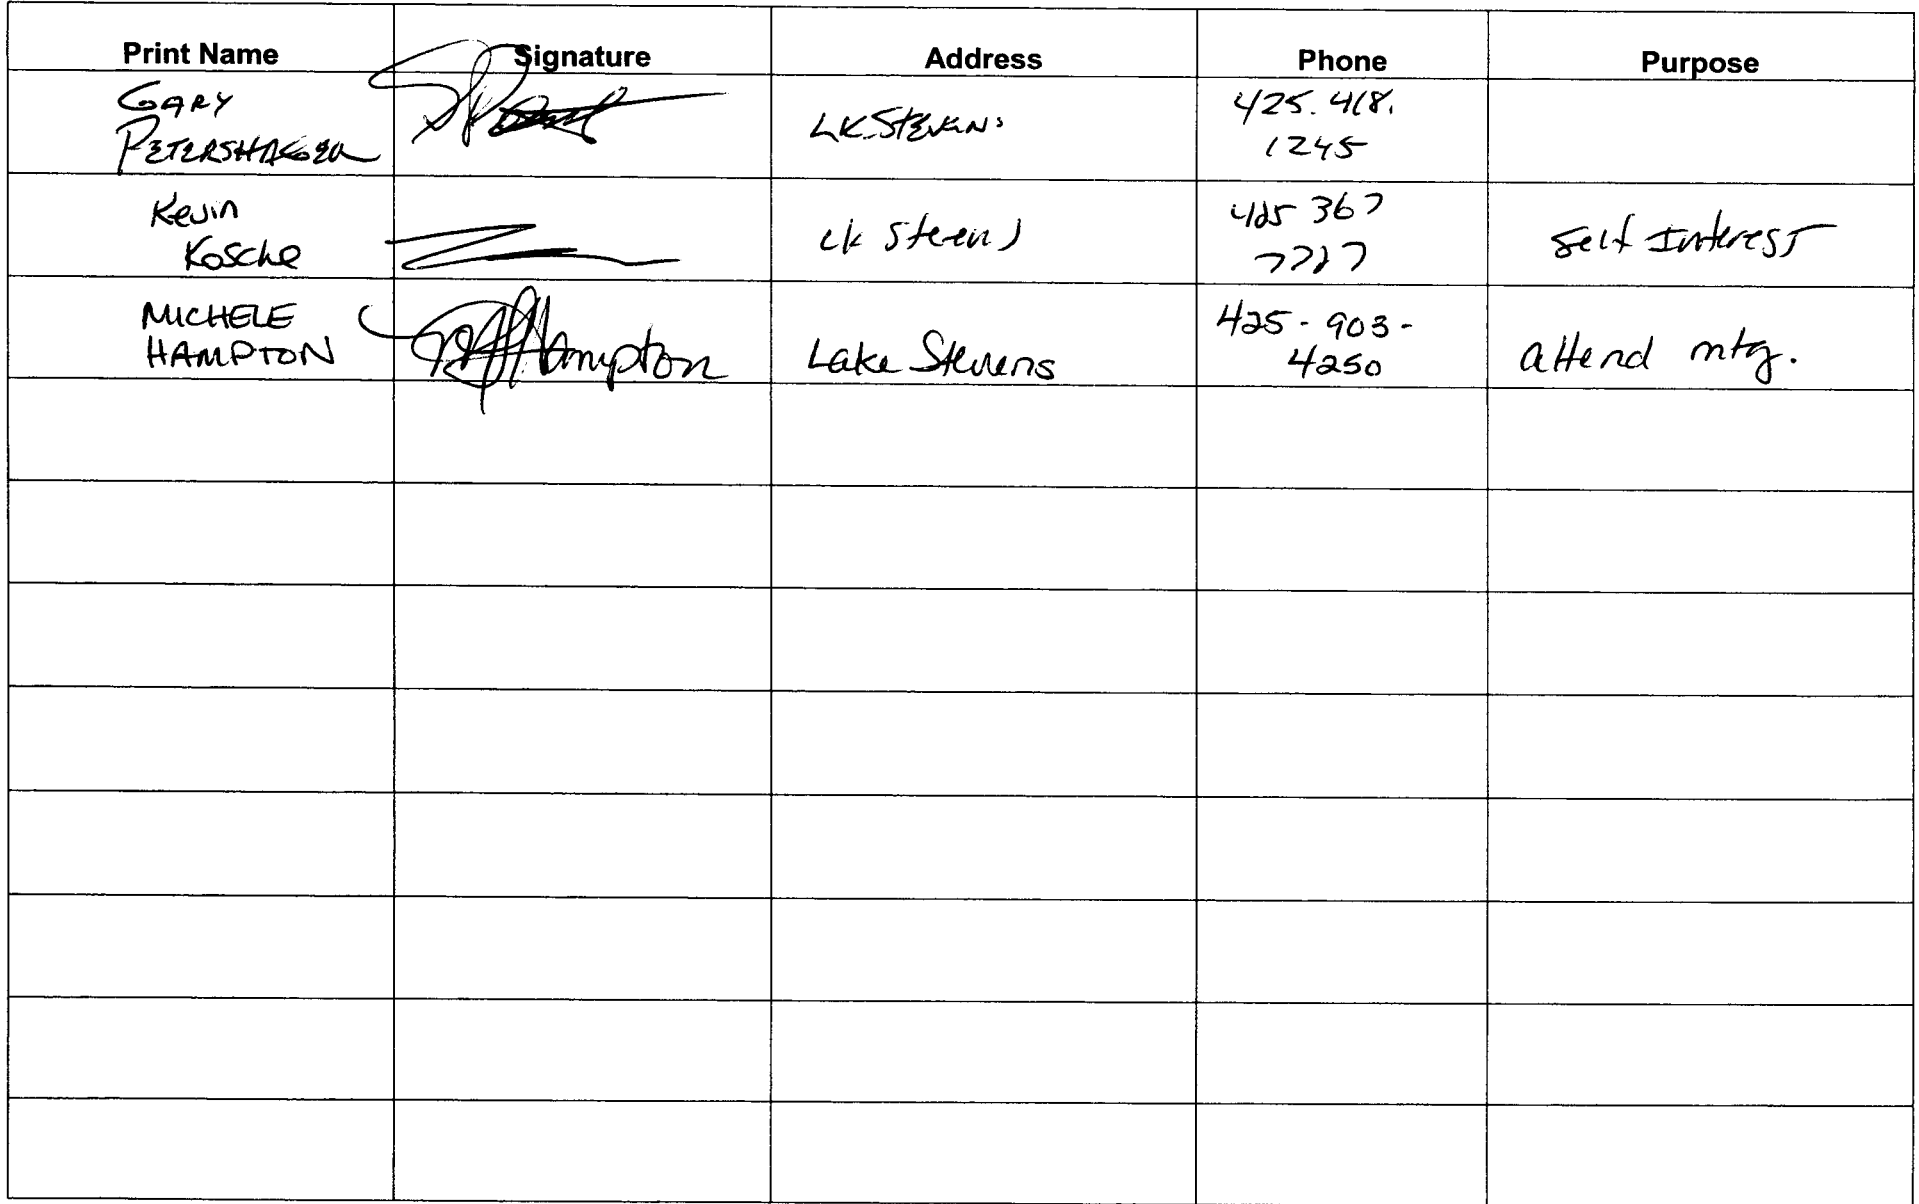 Print Name Signature Address Phone Purpose
GARY
PETERSHAGEN
LK Stevens
425.418.
1245
Kevin
Kosche
Lk Stevens
425 367
Self Interest
MICHELE
HAMPTON
MHampton
Lake Stevens
425-903-
4250
attend mtg.